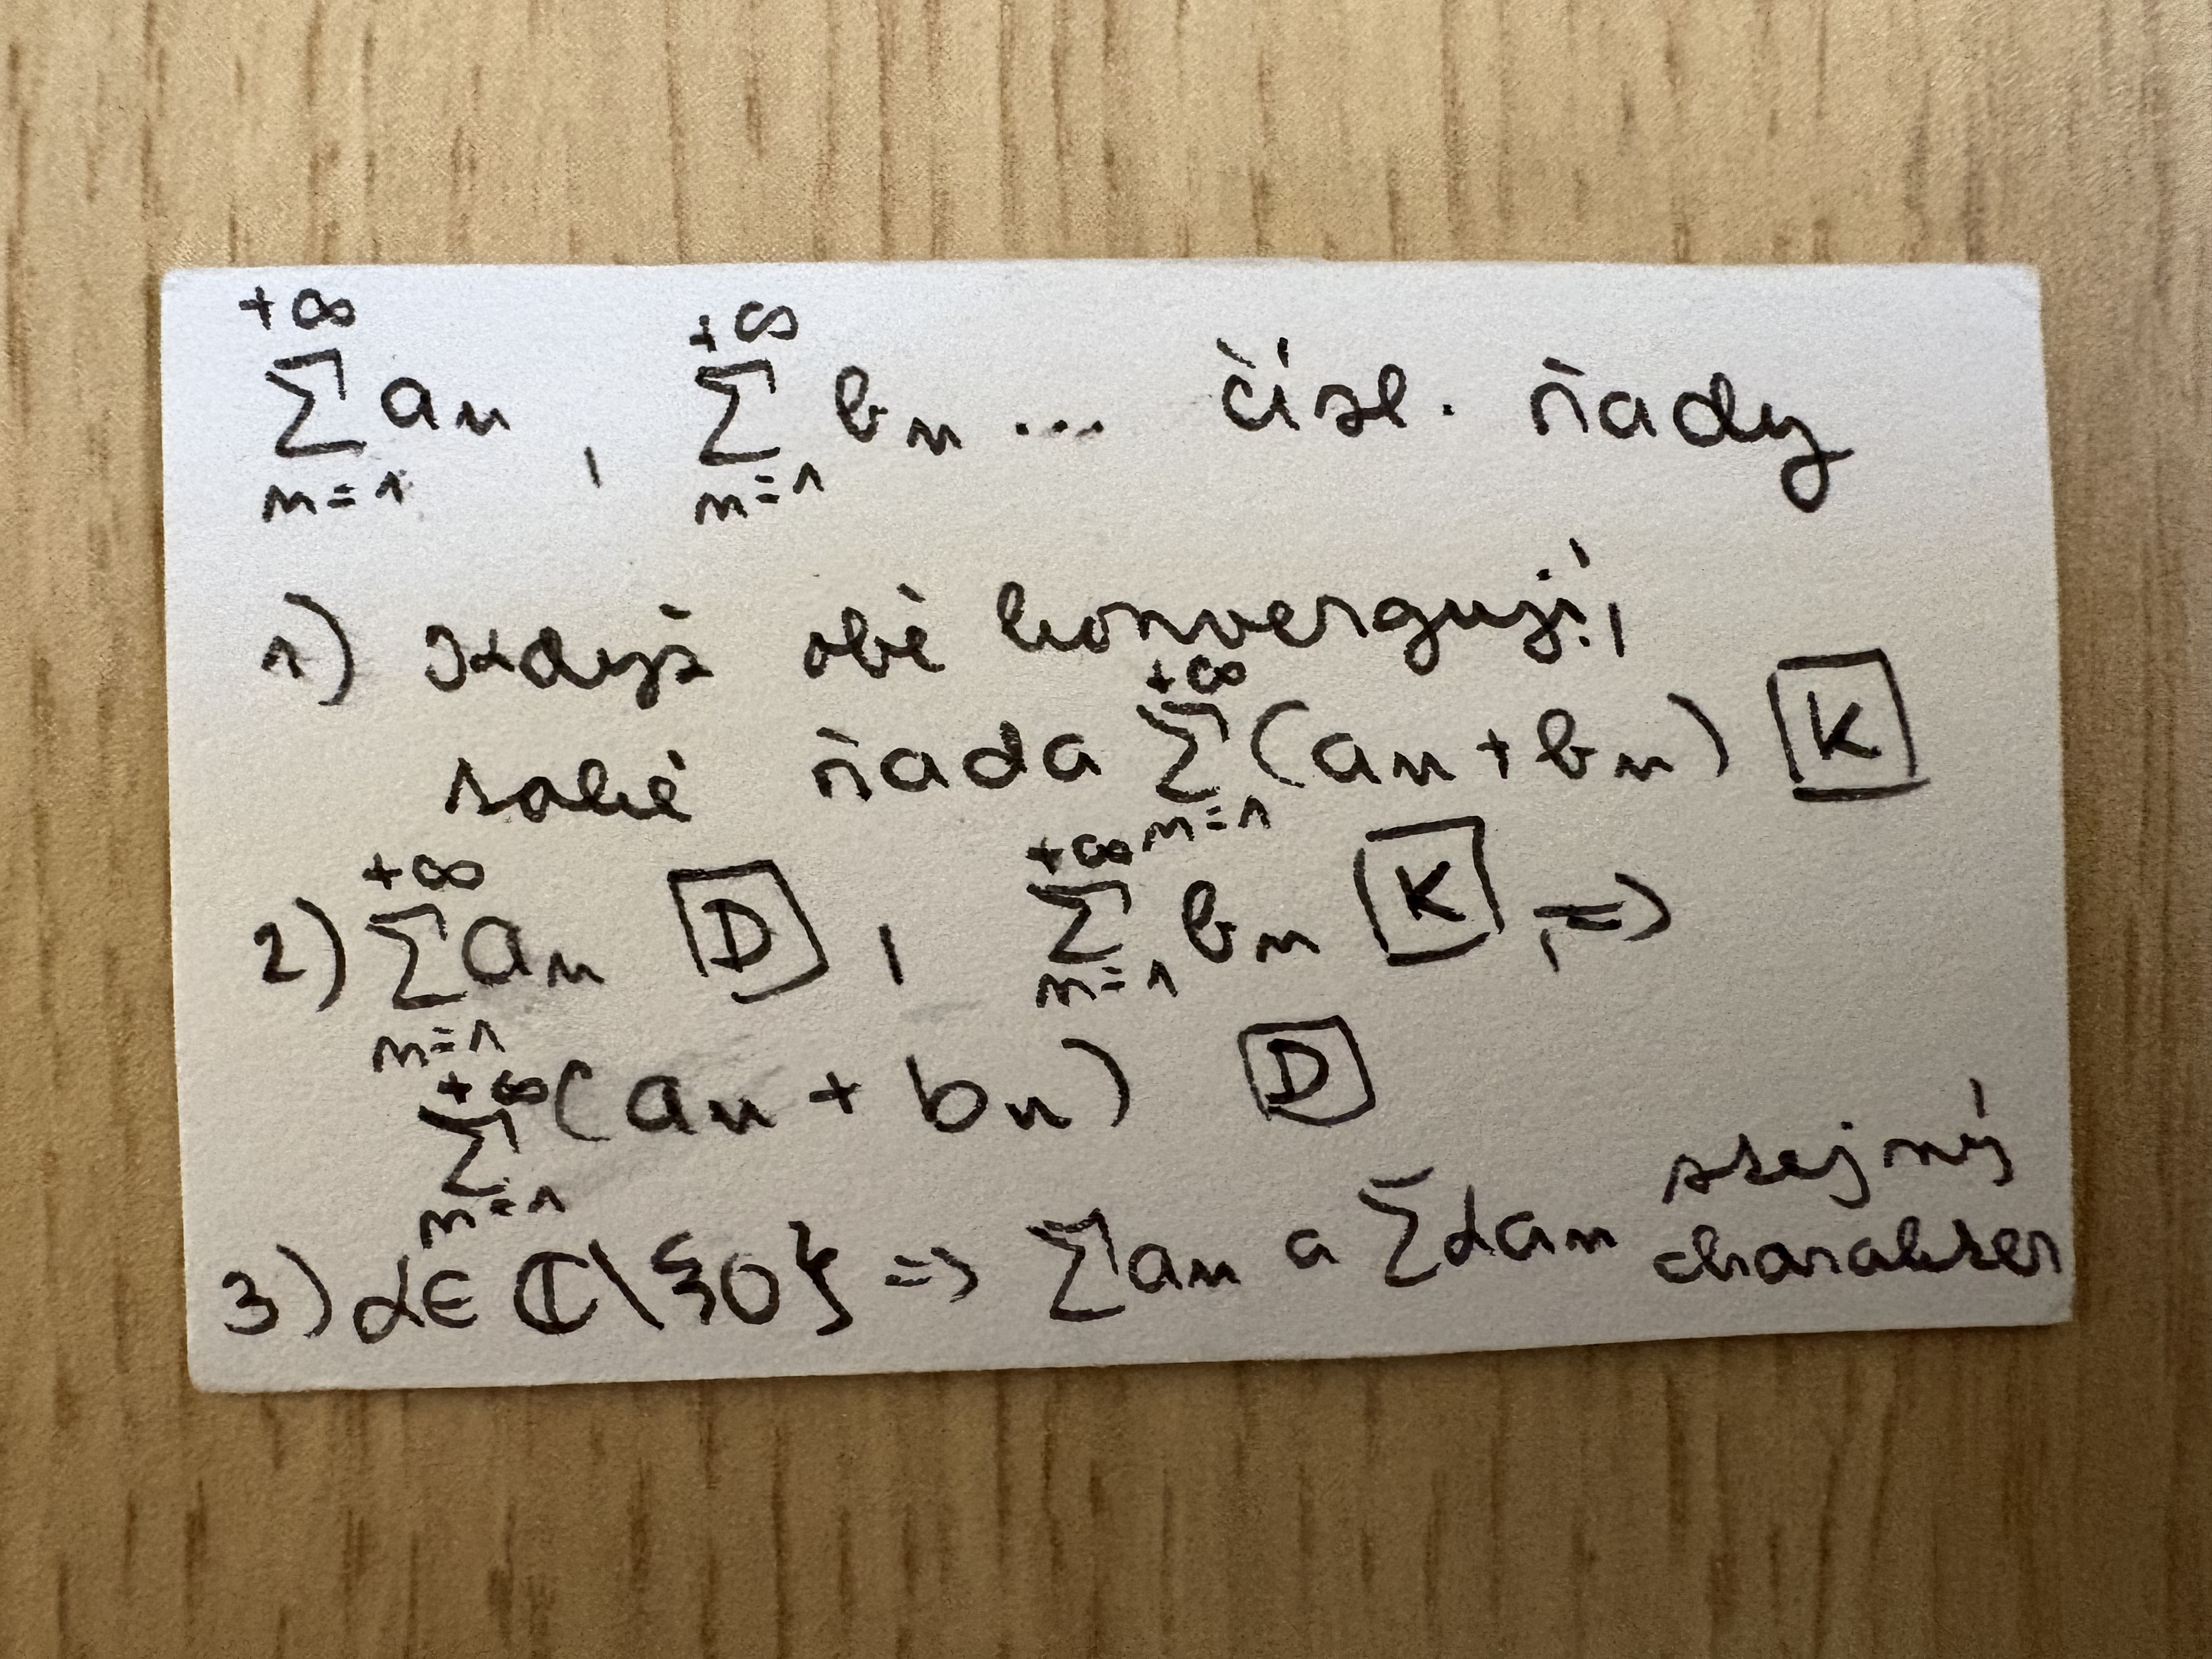 +∞ ∑ n=1 aₙ , +∞ ∑ n=1 bₙ ... čísl. řady
1) když obě konvergují,
také řada +∞ ∑ n=1 (aₙ + bₙ) K
2) +∞ ∑ n=1 aₙ D , +∞ ∑ n=1 bₙ K , =>
+∞ ∑ n=1 (aₙ + bₙ) D
3) α ∈ ℂ\{0} => ∑aₙ a ∑αaₙ stejný
charakter